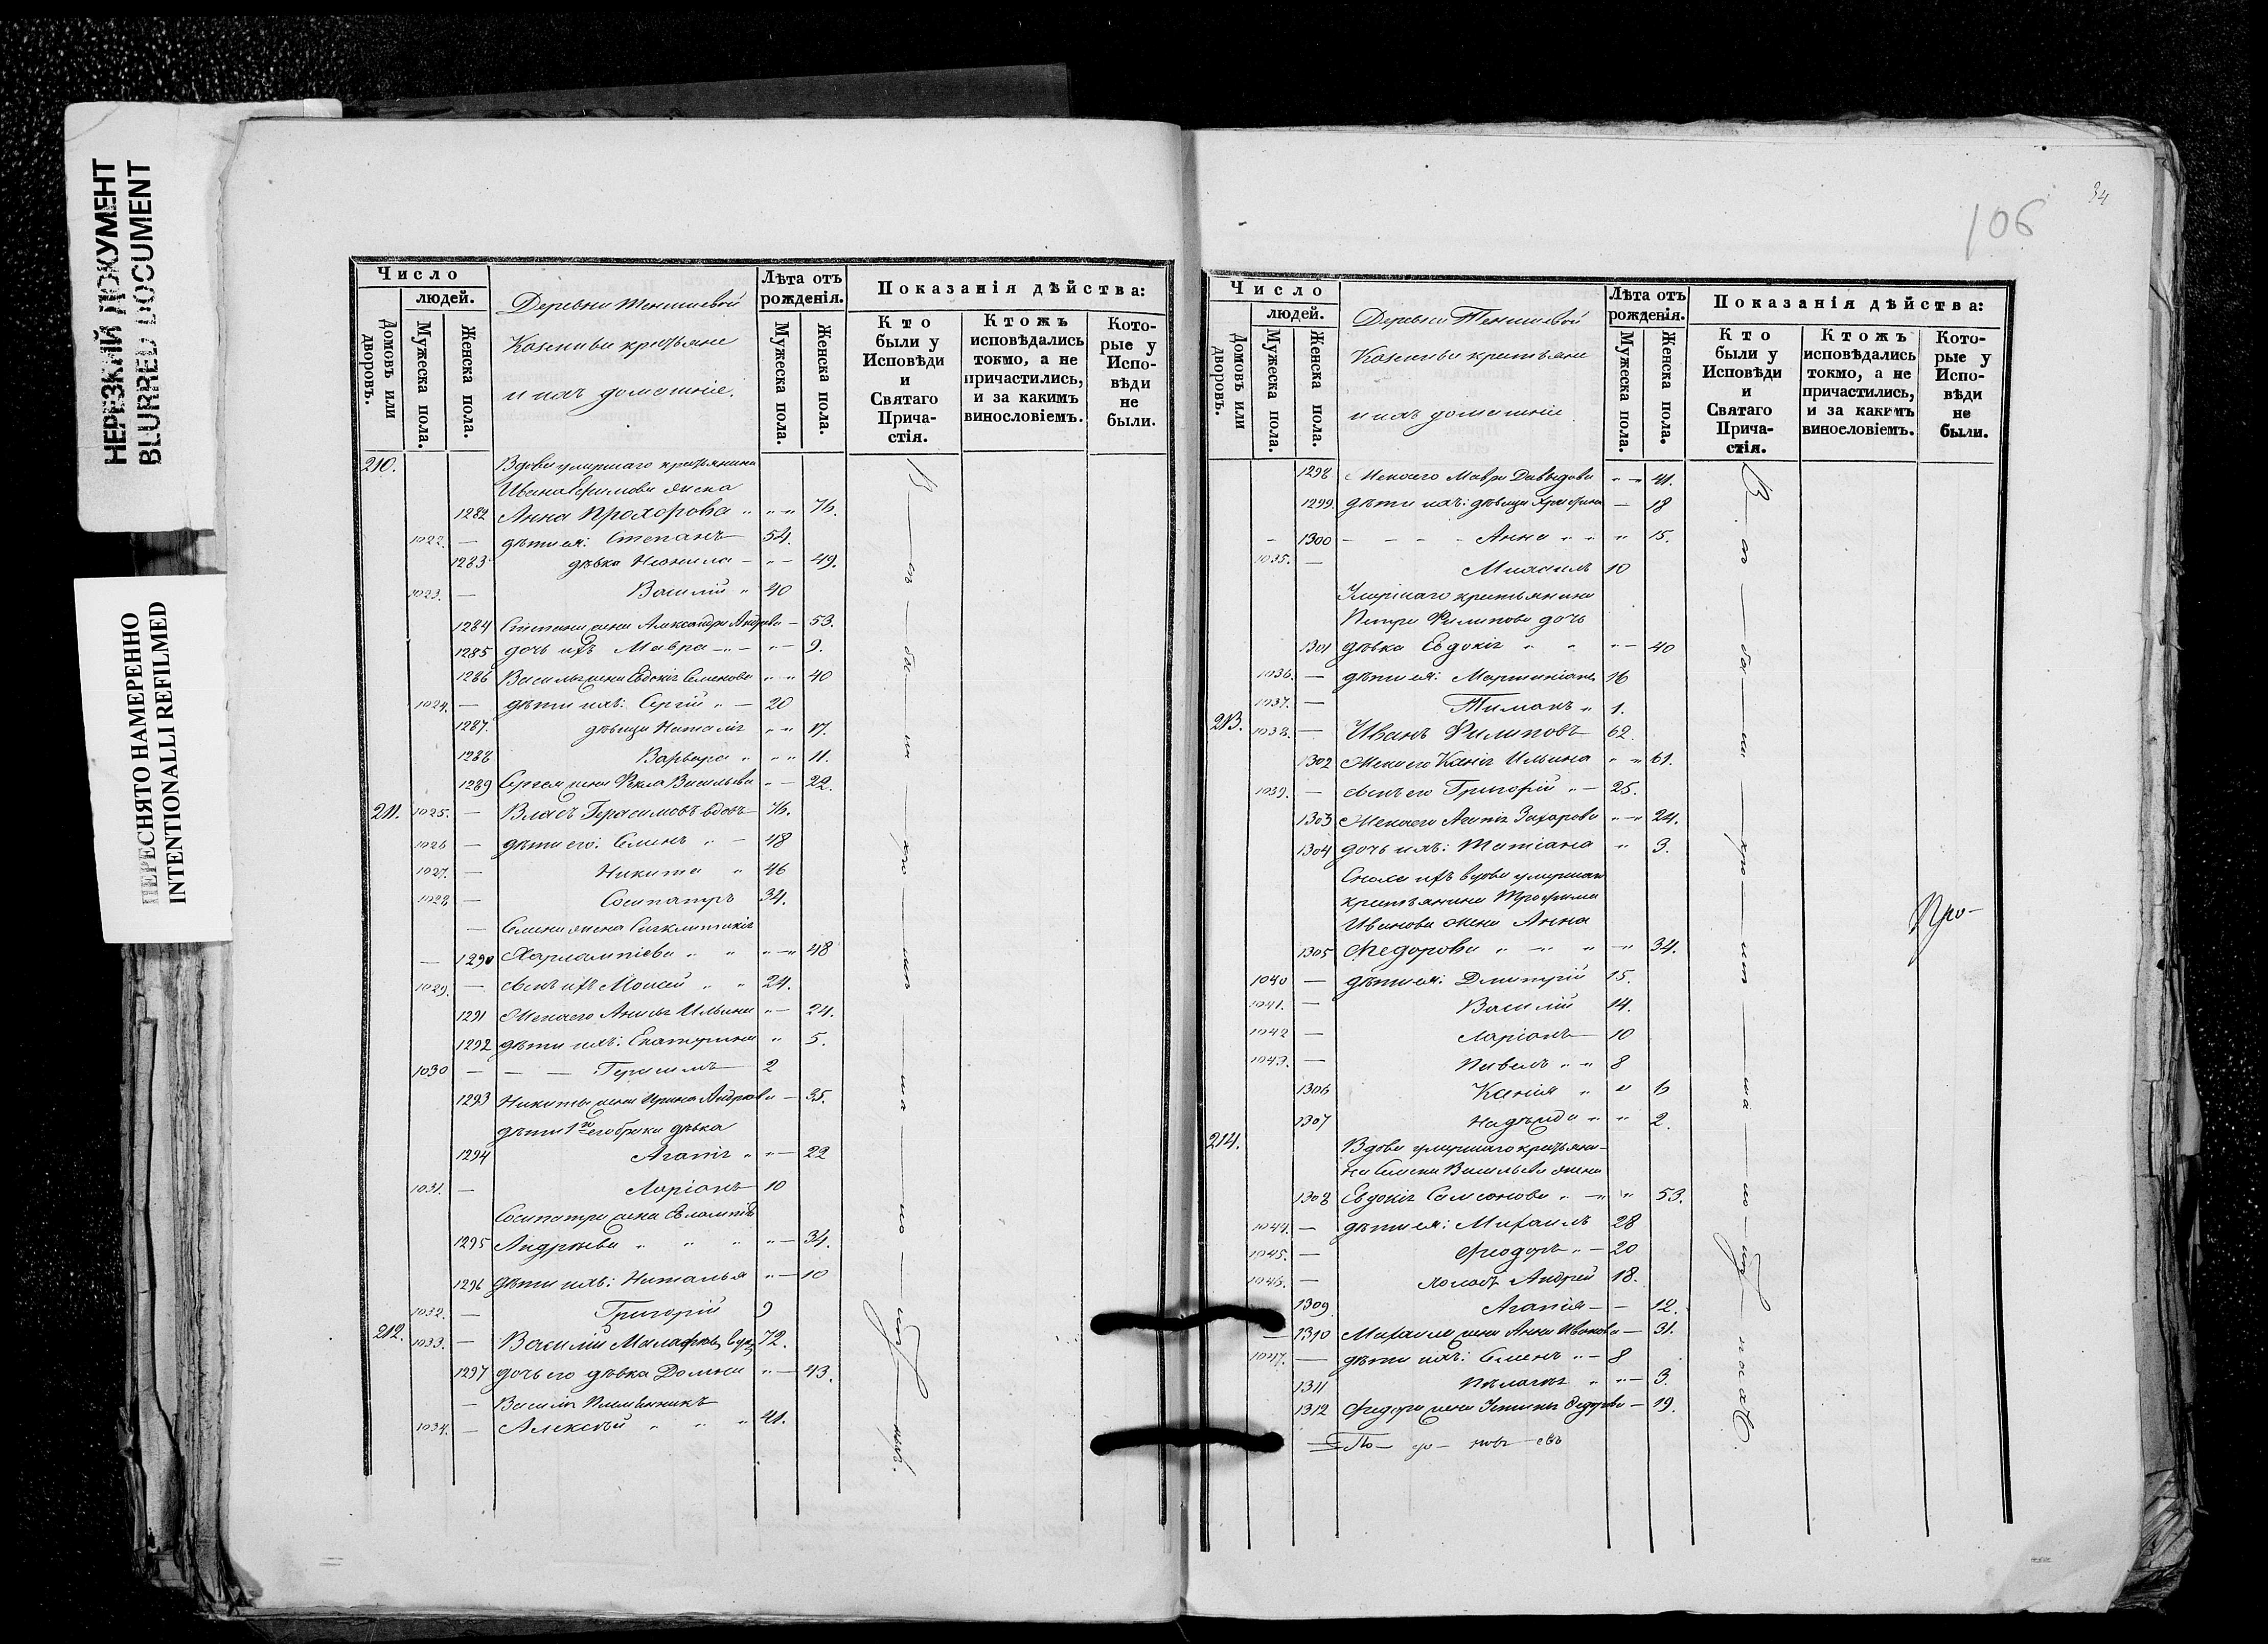 НЕРЕЗКИЙ ДОКУМЕНТ
BLURRED DOCUMENT
ПЕРЕСНЯТО НАМЕРЕННО
INTENTIONALLI REFILMED
Число
людей.
Домовъ или дворовъ.
Мужеска пола.
Женска пола.
Деревни Теншевой
крестьяне
и ихъ домашніе.
Лѣта отъ рожденія.
Мужеска пола.
Женска пола.
Показанія дѣйства:
Кто были у Исповѣди и Святаго Прича-стія.
Ктожъ исповѣдались токмо, а не причастились, и за какимъ винословіемъ.
Кото-рые у Испо-вѣди не были.
210. Вдова умершаго крестьянина
Ивана Ефимова жена
1282 Анна Прохорова " " " 76.
1022. — дѣти ея: Степанъ 54.
1283 дѣвка Неонила — " — 49.
1023. — Василій " 40
1284 Степана жена Александра Андреева — 53.
1285 дочь ихъ Мавра — " — 9.
1286 Василья жена Евдокія Семенова " " 40
1024. — дѣти ихъ: Сергій " — 20
1287. дѣвица Наталія " " 17.
1288 Варвара " " " 11.
1289 Сергея жена Фекла Васильева " — 22.
211. 1025. — Власъ Герасимовъ вдовъ 76.
1026 — дѣти его: Семенъ " — 48
1027. — Никита " 46
1028 — Сосипатръ 34.
— Семена жена Синклитикія
— 1290 Харлампіева " " " — " 48
1029. — сынъ ихъ Моисей " " 24.
1291 Жена его Анисья Ильина " — 24.
1292 дѣти ихъ: Екатерина " 5.
1030 — — — Герасимъ 2
1293 Никиты жена Ирина Андреева — 35.
дѣти 1го его брака дѣвка
1294 Агапія " " — 22
1031. — Ларіонъ 10
Сосипатра жена Евлампія
1295 Андреева " " " " — 34.
1296 дѣти ихъ: Наталья " — 10
1032. — Григорій 9
212. 1033. — Василій 72.
1297 дочь его дѣвка Домна " — 43.
— Василія племянникъ
1034. — Алексѣй " " " 41.
34
106
Число
людей.
Домовъ или дворовъ.
Мужеска пола.
Женска пола.
Деревни Теншевой
крестьяне
и ихъ домашніе
Лѣта отъ рожденія.
Мужеска пола.
Женска пола.
Показанія дѣйства:
Кто были у Исповѣди и Святаго Прича-стія.
Ктожъ исповѣдались токмо, а не причастились, и за какимъ винословіемъ.
Кото-рые у Испо-вѣди не были.
1298 Жена его Мавра Давыдова " — 41.
1299. дѣти ихъ: дѣвица — 18
— 1300 — — — Анна " " " 15.
1035. — Михаилъ 10
Умершаго крестьянина
Петра Филипова дочь
1301 дѣвка Евдокія " " " — 40
1036. — дѣти ея: Мартиніанъ 16
1037. — " 1.
213. 1038. — Иванъ Филиповъ 62.
1302 Жена его Ксенія Ильина " " 61.
1039. — сынъ его Григорій " — 25.
1303 Жена его Агапія Захарова " — " 24.
1304 дочь ихъ: Татіана " 3.
Сноха ихъ вдова умершаго
крестьянина Трофима
Иванова жена Анна
1305 Федорова " — " " — " 34.
1040 — дѣти ея: Дмитрій 15.
1041. — Василій 14.
1042 — Ларіонъ 10
1043. — Павелъ " " 8
1306 Ксенія " " 6
1307 Надежда " " 2.
214. Вдова умершаго крестьяни-
на Семена Васильева жена
1308 Евдокія Самсонова " — " " 53.
1044. — дѣти ея: Михаилъ 28
1045. — Феодоръ " — 20
1046. — холостъ Андрей 18.
1309 Агапія — — 12.
— 1310 Михаила жена Анна Иванова — 31.
1047. — дѣти ихъ: Семенъ " — 8
1311 Пелагія " " — 3.
1312 Федора жена Федорова — 19.
Про-